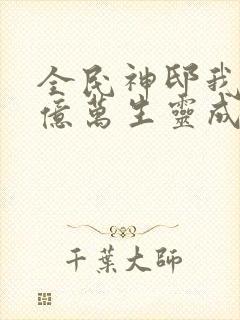 全民神邸我
億萬生靈成
千葉大师